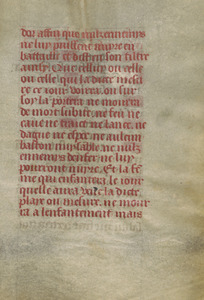 dor affin que nulz ennemis
ne luy puissent nuyre en
bataille et dessen son tiltre
aussy. Que celluy ou celle
ou celle qui la dicte mesu
re ce iour voirra ou sur
soy la portera ne mourra
de mort subite ne feu ne
eaue ne trait ne lance ne
dague ne espee ne autrem
baston nuysable ne nulz
ennemis denfer ne luy
pourront nuyre. Et la fe
me qui enfantera le iour
quelle aura veu la dicte
playe ou mesure ne mour
ra a lenfantement mais